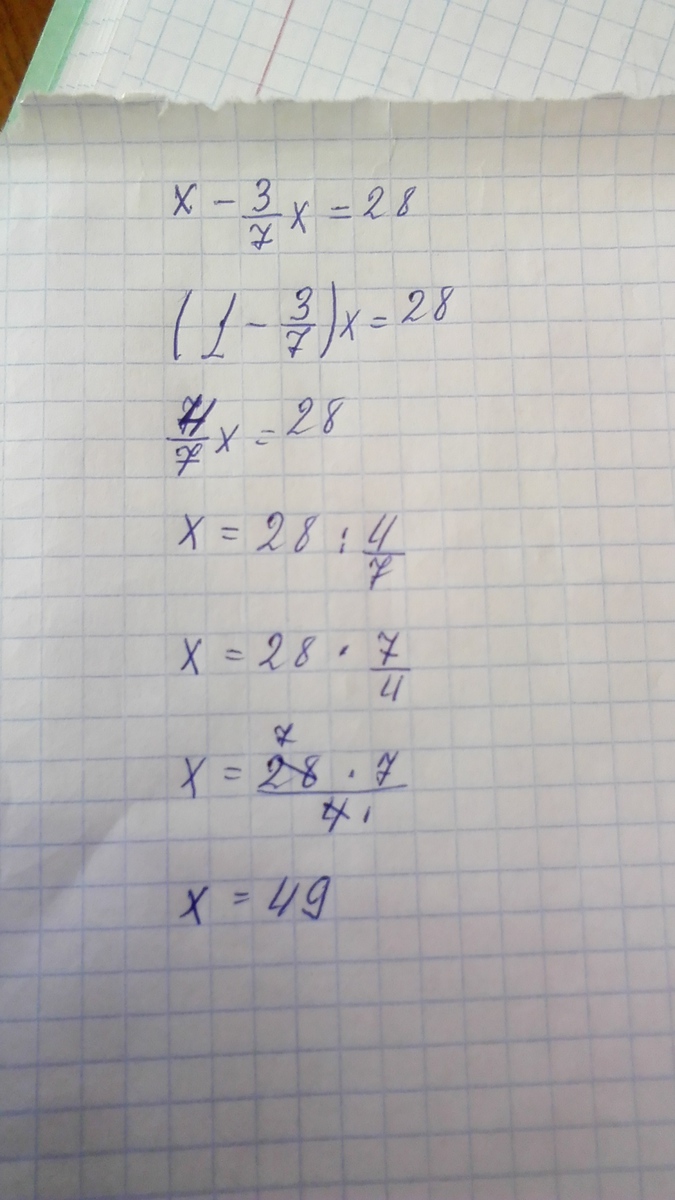 x - 3/7 x = 28
(1 - 3/7)x = 28
4/7 x = 28
x = 28 : 4/7
x = 28 · 7/4
7
x = 28 · 7 / 4 1
x = 49